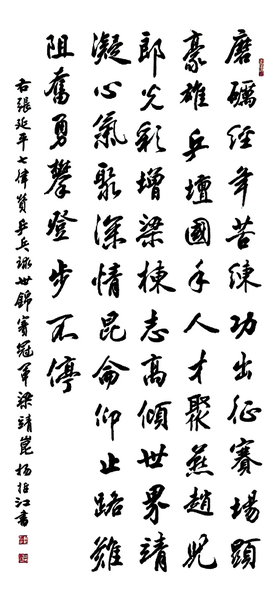 磨礪經年苦練功出征賽場顯
豪雄乒壇國手人才聚燕趙兒
郎光彩增梁棟志高傾世界靖
凝心氣聚深情昆侖仰止路難
阻奮勇攀登步不停
右張延平七律贊乒乓球世錦賽冠軍梁靖崑 楊江書